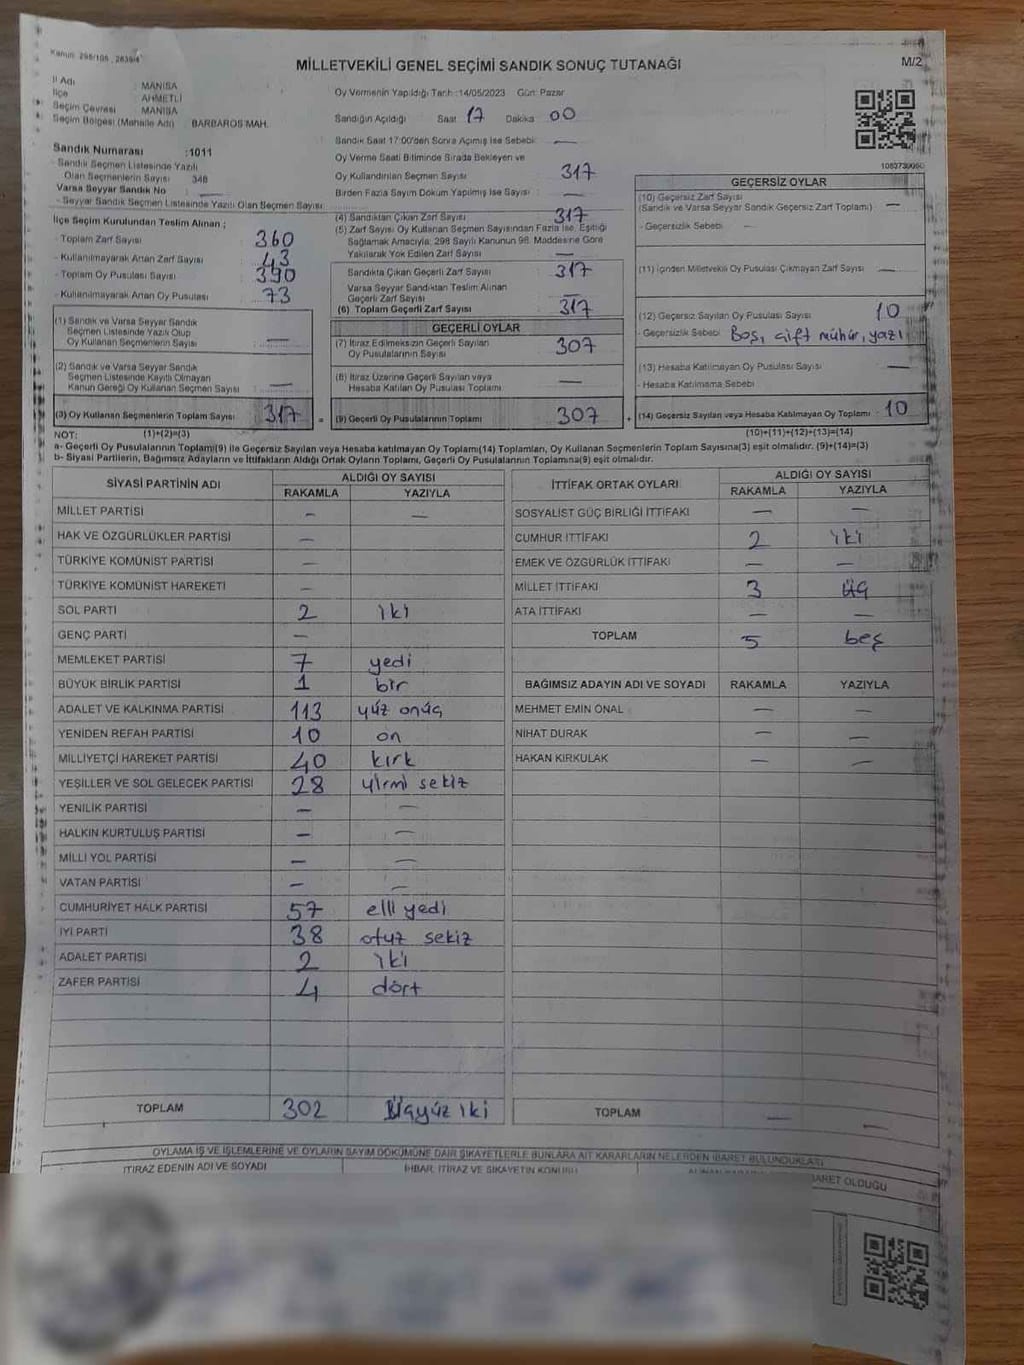 Kanun: 298/105, 2839/4
MİLLETVEKİLİ GENEL SEÇİMİ SANDIK SONUÇ TUTANAĞI
M/2
İl Adı : MANİSA
İlçe : AHMETLİ
Seçim Çevresi : MANİSA
Seçim Bölgesi (Mahalle Adı) : BARBAROS MAH.
Oy Vermenin Yapıldığı Tarih :14/05/2023 Gün: Pazar
Sandığın Açıldığı Saat 17 Dakika 00
Sandık Saat 17:00'den Sonra Açılmış İse Sebebi: —
Oy Verme Saati Bitiminde Sırada Bekleyen ve
Oy Kullandırılan Seçmen Sayısı : 317
Birden Fazla Sayım Döküm Yapılmış İse Sayısı : —
Sandık Numarası :1011
- Sandık Seçmen Listesinde Yazılı
Olan Seçmenlerin Sayısı : 348
Varsa Seyyar Sandık No : —
- Seyyar Sandık Seçmen Listesinde Yazılı Olan Seçmen Sayısı:
İlçe Seçim Kurulundan Teslim Alınan ;
- Toplam Zarf Sayısı : 360
- Kullanılmayarak Artan Zarf Sayısı : 43
- Toplam Oy Pusulası Sayısı : 390
- Kullanılmayarak Artan Oy Pusulası : 73
(1) Sandık ve Varsa Seyyar Sandık
Seçmen Listesinde Yazılı Olup
Oy Kullanan Seçmenlerin Sayısı : —
(2) Sandık ve Varsa Seyyar Sandık
Seçmen Listesinde Kayıtlı Olmayan
Kanun Gereği Oy Kullanan Seçmen Sayısı : —
(3) Oy Kullanan Seçmenlerin Toplam Sayısı : 317 =
(4) Sandıktan Çıkan Zarf Sayısı : 317
(5) Zarf Sayısı Oy Kullanan Seçmen Sayısından Fazla İse, Eşitliği
Sağlamak Amacıyla; 298 Sayılı Kanunun 98. Maddesine Göre
Yakılarak Yok Edilen Zarf Sayısı : —
Sandıkta Çıkan Geçerli Zarf Sayısı : 317
Varsa Seyyar Sandıktan Teslim Alınan
Geçerli Zarf Sayısı : —
(6) Toplam Geçerli Zarf Sayısı : 317
GEÇERLİ OYLAR
(7) İtiraz Edilmeksizin Geçerli Sayılan
Oy Pusulalarının Sayısı : 307
(8) İtiraz Üzerine Geçerli Sayılan veya
Hesaba Katılan Oy Pusulası Toplamı : —
(9) Geçerli Oy Pusulalarının Toplamı : 307 +
GEÇERSİZ OYLAR
(10) Geçersiz Zarf Sayısı
(Sandık ve Varsa Seyyar Sandık Geçersiz Zarf Toplamı) : —
- Geçersizlik Sebebi : —
(11) İçinden Milletvekili Oy Pusulası Çıkmayan Zarf Sayısı : —
(12) Geçersiz Sayılan Oy Pusulası Sayısı : 10
- Geçersizlik Sebebi : Boş, çift mühür, yazı
(13) Hesaba Katılmayan Oy Pusulası Sayısı : —
- Hesaba Katılmama Sebebi :
(14) Geçersiz Sayılan veya Hesaba Katılmayan Oy Toplamı : 10
NOT: (1)+(2)=(3)
(10)+(11)+(12)+(13)=(14)
a- Geçerli Oy Pusulalarının Toplamı(9) ile Geçersiz Sayılan veya Hesaba katılmayan Oy Toplamı(14) Toplamları, Oy Kullanan Seçmenlerin Toplam Sayısına(3) eşit olmalıdır. (9)+(14)=(3)
b- Siyasi Partilerin, Bağımsız Adayların ve İttifakların Aldığı Ortak Oyların Toplamı, Geçerli Oy Pusulalarının Toplamına(9) eşit olmalıdır.
SİYASİ PARTİNİN ADI ALDIĞI OY SAYISI
RAKAMLA YAZIYLA
MİLLET PARTİSİ — —
HAK VE ÖZGÜRLÜKLER PARTİSİ —
TÜRKİYE KOMÜNİST PARTİSİ —
TÜRKİYE KOMÜNİST HAREKETİ —
SOL PARTİ 2 iki
GENÇ PARTİ —
MEMLEKET PARTİSİ 7 yedi
BÜYÜK BİRLİK PARTİSİ 1 bir
ADALET VE KALKINMA PARTİSİ 113 yüz onüç
YENİDEN REFAH PARTİSİ 10 on
MİLLİYETÇİ HAREKET PARTİSİ 40 kırk
YEŞİLLER VE SOL GELECEK PARTİSİ 28 yirmi sekiz
YENİLİK PARTİSİ — —
HALKIN KURTULUŞ PARTİSİ — —
MİLLİ YOL PARTİSİ — —
VATAN PARTİSİ — —
CUMHURİYET HALK PARTİSİ 57 elli yedi
İYİ PARTİ 38 otuz sekiz
ADALET PARTİSİ 2 iki
ZAFER PARTİSİ 4 dört
TOPLAM 302 Üçyüz iki
İTTİFAK ORTAK OYLARI ALDIĞI OY SAYISI
RAKAMLA YAZIYLA
SOSYALİST GÜÇ BİRLİĞİ İTTİFAKI — —
CUMHUR İTTİFAKI 2 iki
EMEK VE ÖZGÜRLÜK İTTİFAKI — —
MİLLET İTTİFAKI 3 üç
ATA İTTİFAKI — —
TOPLAM 5 beş
BAĞIMSIZ ADAYIN ADI VE SOYADI RAKAMLA YAZIYLA
MEHMET EMİN ÖNAL — —
NİHAT DURAK — —
HAKAN KIRKULAK — —
TOPLAM — —
OYLAMA İŞ VE İŞLEMLERİNE VE OYLARIN SAYIM DÖKÜMÜNE DAİR ŞİKAYETLERLE BUNLARA AİT KARARLARIN NELERDEN İBARET BULUNDUKLARI
İTİRAZ EDENİN ADI VE SOYADI İHBAR, İTİRAZ VE ŞİKAYETİN KONUSU
İBARET OLDUĞU